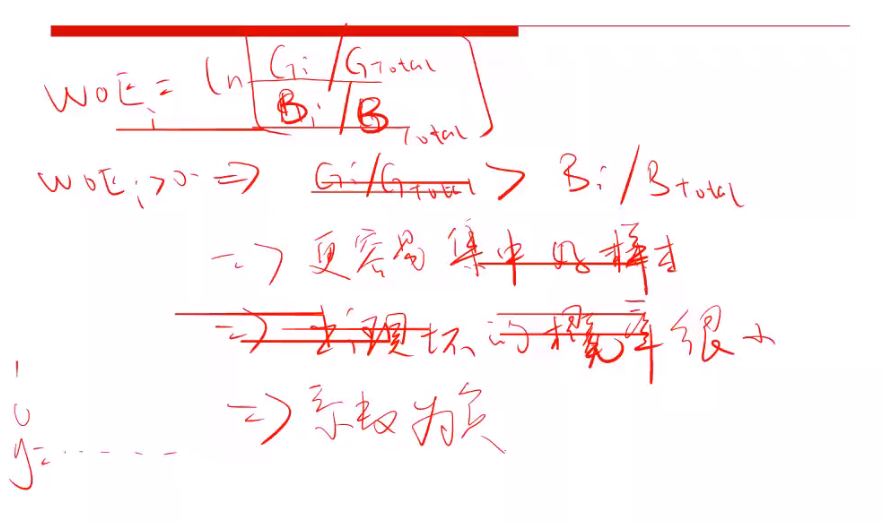 WOE_i = ln(G_i/G_Total / B_i/B_Total)
WOE_i>0 => G_i/G_Total > B_i/B_Total
=> 更容易集中好样本
=> 出现坏的概率很小
=> 系数为负
1
0
y=......